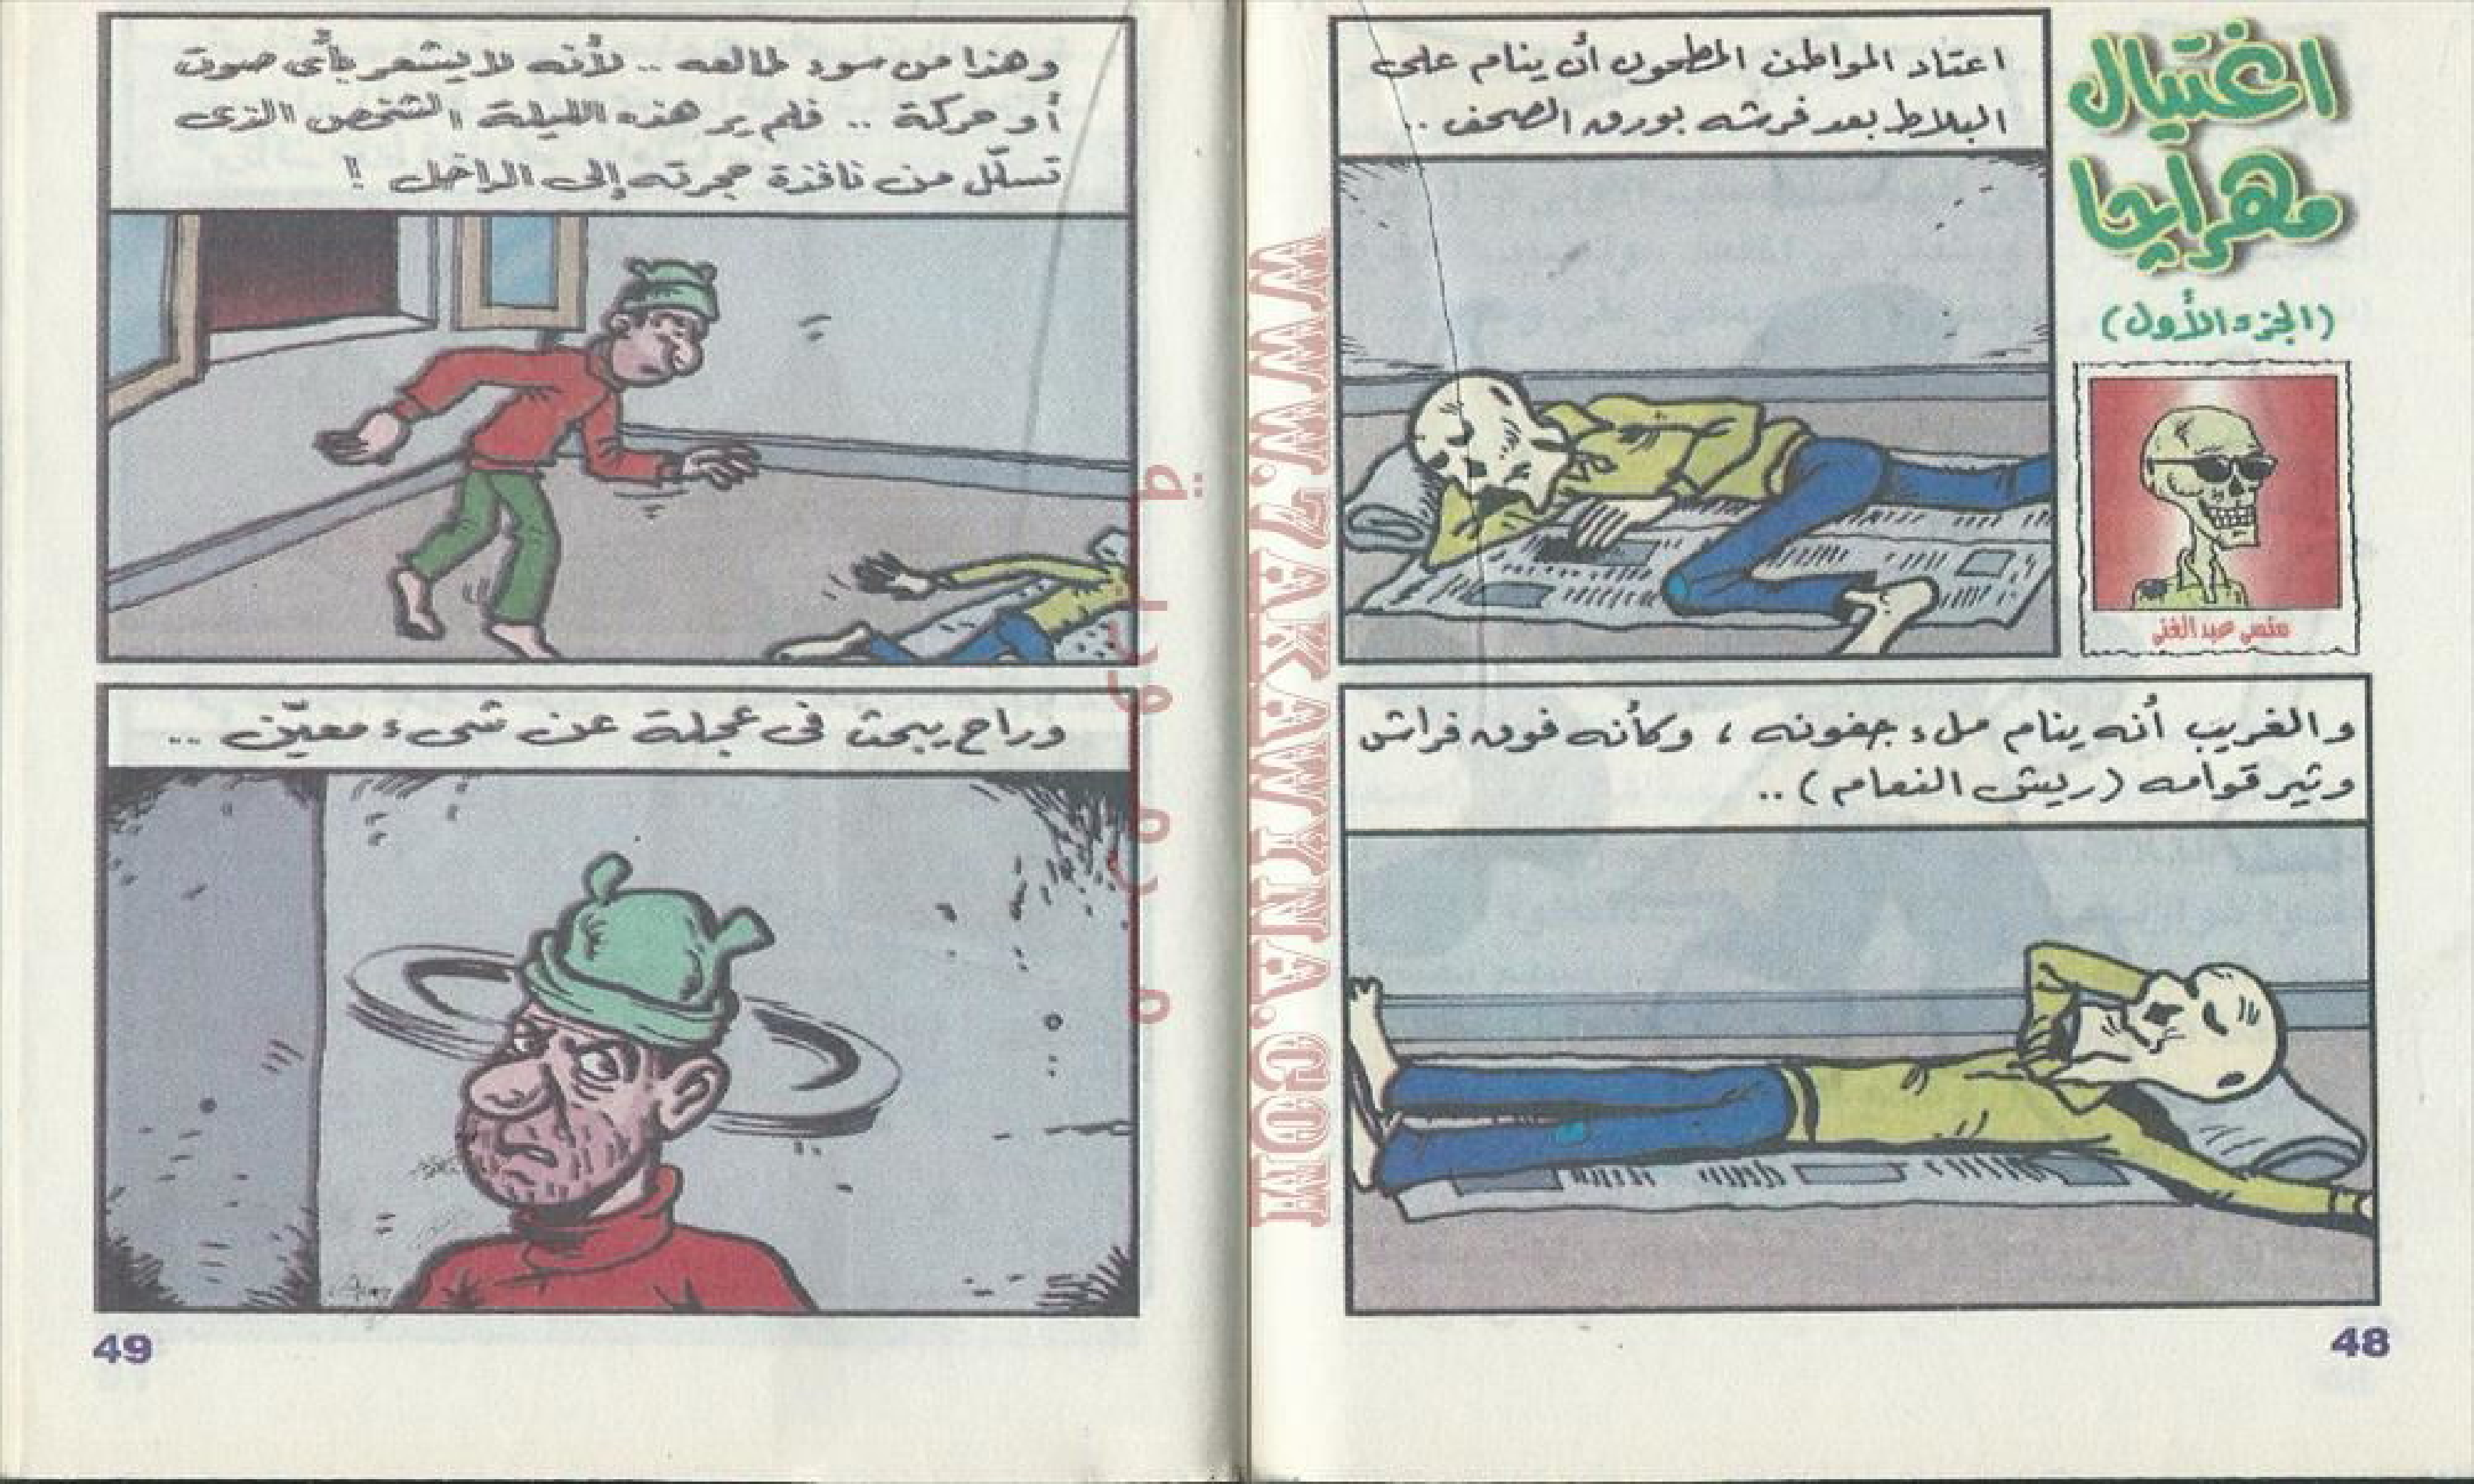 اغتيال
مهراجا
(الجزء الأول)
عبد الغني
اعتاد المواطن المطحون أن ينام على
البلاط بعد فرشه بورق الصحف ..
والغريب أنه ينام ملء جفونه ، وكأنه فوق فراش
وثير قوامه (ريش النعام) ..
48
WWW.ZAKAWINA.COM
وهذا من سوء طالعه .. لأنه لا يشعر بأى صوت
أو حركة .. فلم ير هذه الليلة الشخص الذى
تسلّل من نافذة حجرته إلى الداخل !!
وراح يبحث فى عجلة عن شىء معيّن ..
49